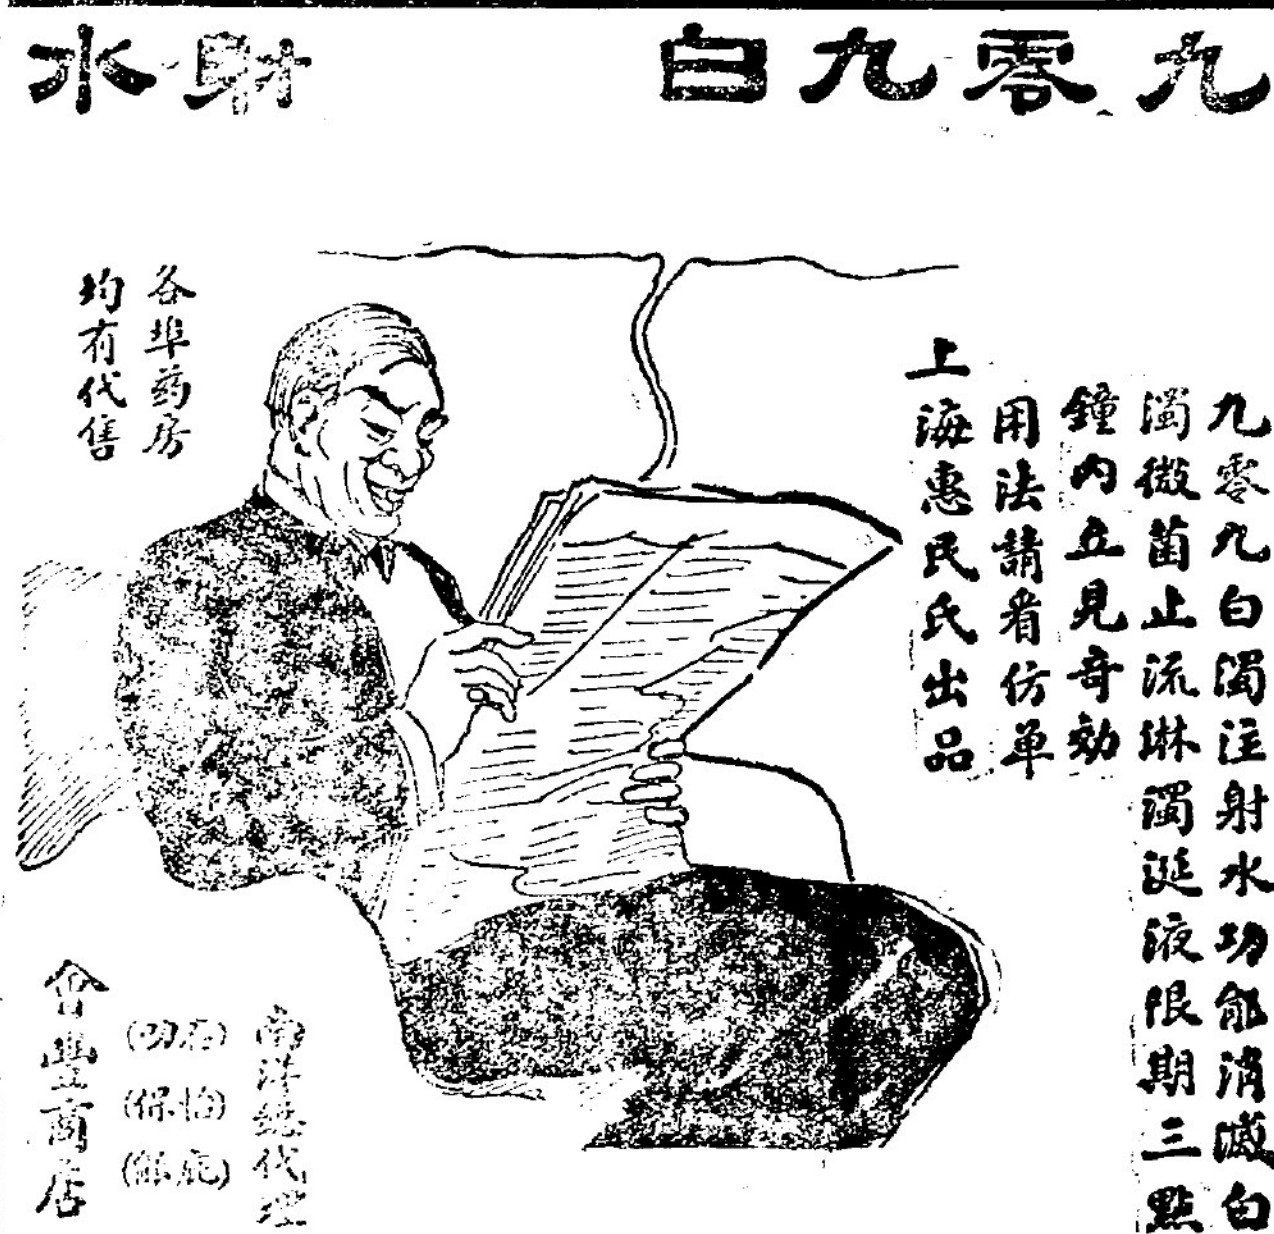 九零九白 射水
九零九白濁注射水功能消滅白
濁微菌止流淋濁涎液限期三點
鐘內立見奇効
用法請看仿單
上海惠民氏出品
各埠药房
均有代售
南洋總代理
(石叻)
(怡保)
(庇能)
會豐商店